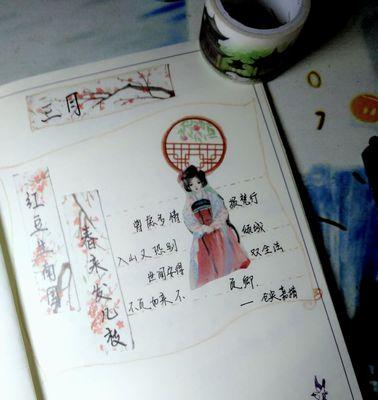 三月
红豆生南国
春来发几枝
曾虑多情 损梵行
入山又恐别 倾城
世间安得 双全法
不负如来不 负卿
— 仓央嘉措